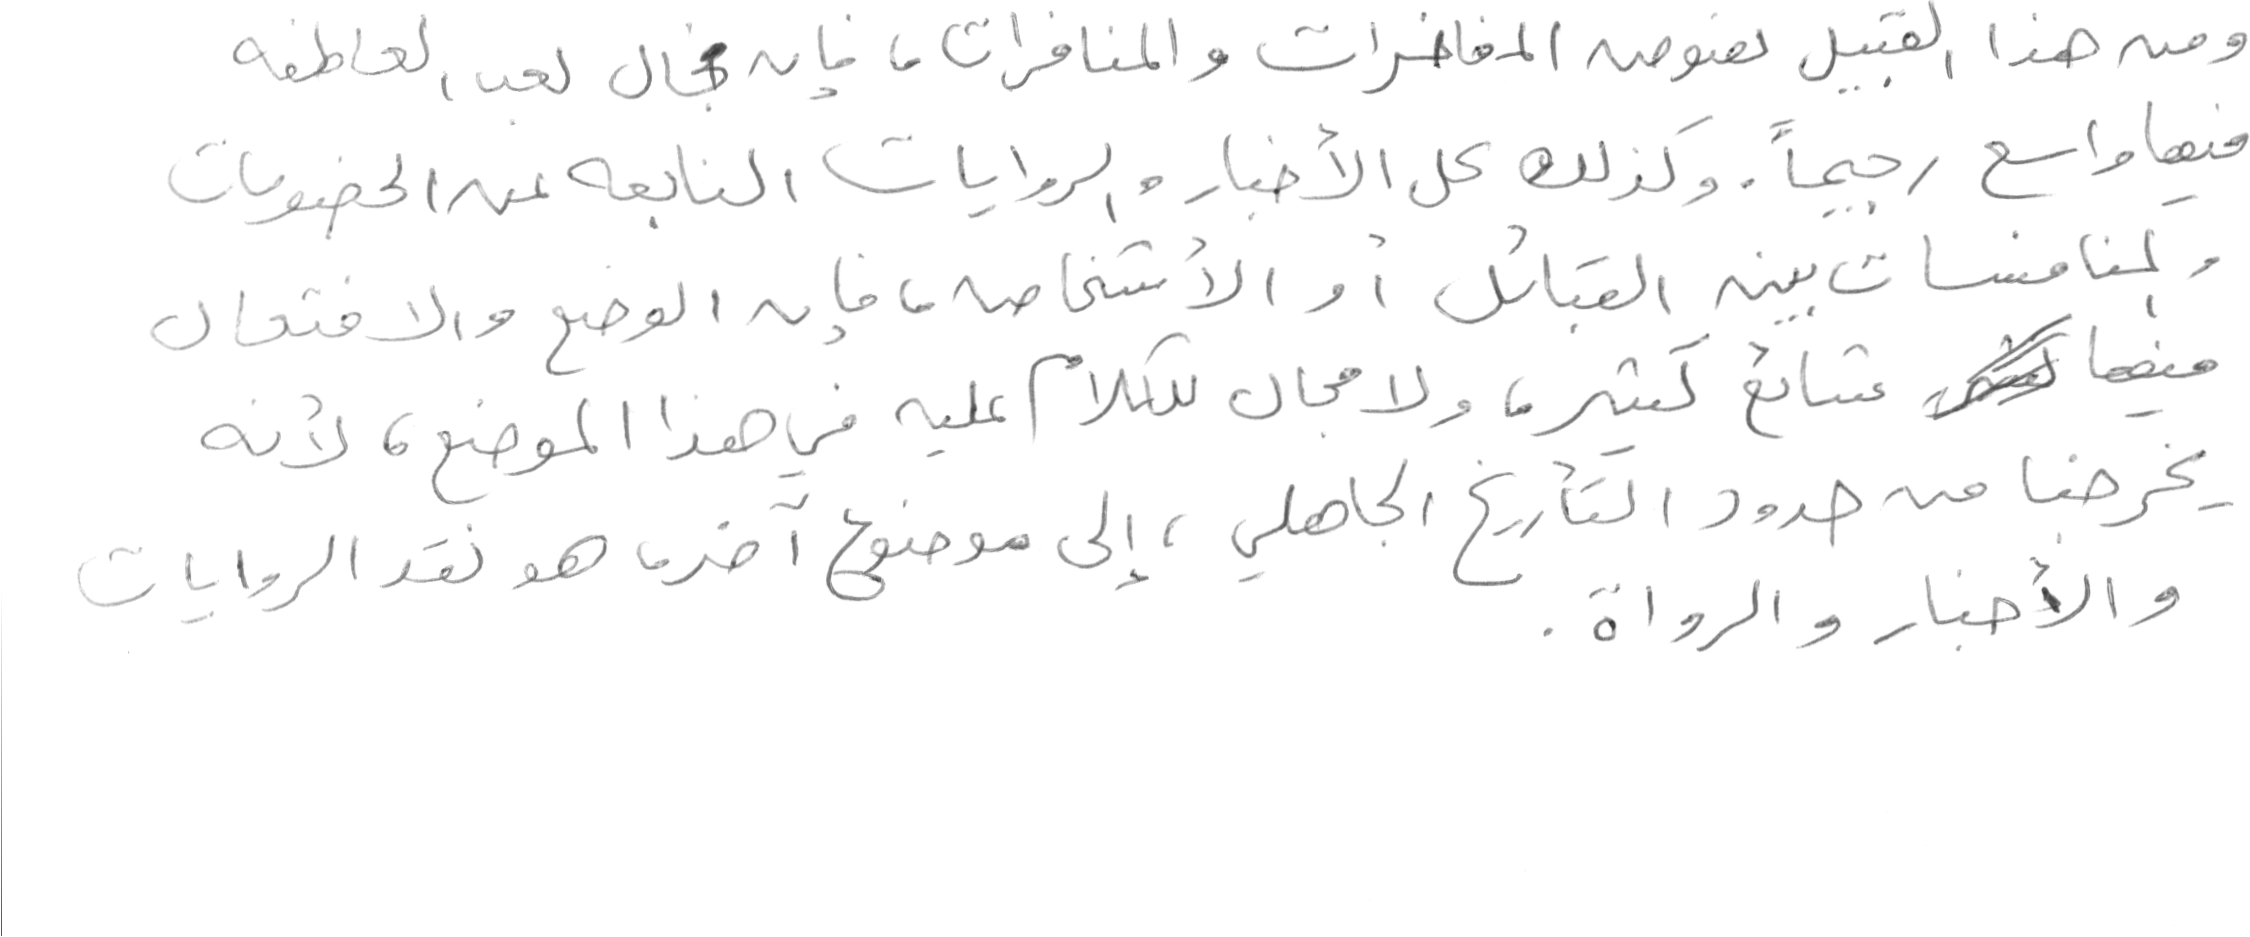 ومن هذا القبيل نصوص المفاخرات والمنافرات، فإن مجال لعب العاطفه
فيها واسع رحيباً. وكذلك كل الأخبار والروايات النابعه عن الخصومات
والمنافسات بين القبائل أو الأشخاص، فإن الوضع والافتعال
فيها شائع كثير، ولا مجال للكلام عليه في هذا الموضع، لأنه
يخرجنا من حدود التأريخ الجاهلي، إلى موضوع آخر، هو نقد الروايات
والأخبار والرواة.